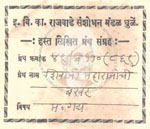 इ. वि. का. राजवाडे संशोधन मंडळ धुळें.
हस्त लिखित ग्रंथ संग्रह
ग्रंथ क्रमांक
ग्रंथ नाम शिवाजी महाराजांची
बखर
विषय म. गद्य.